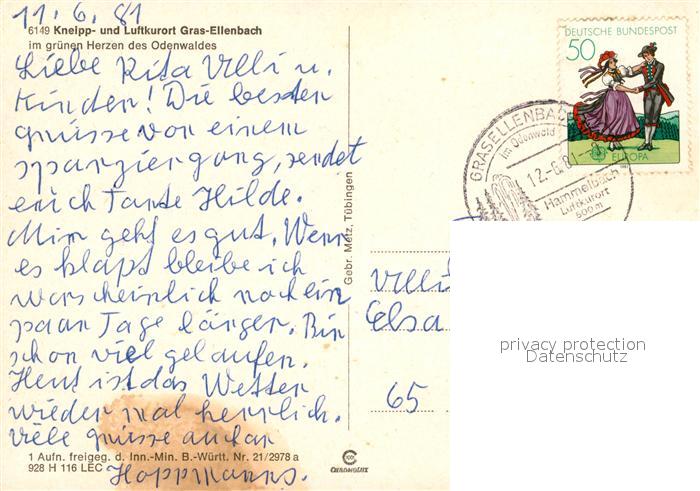 11.6.81
6149 Kneipp- und Luftkurort Gras-Ellenbach
im grünen Herzen des Odenwaldes
Liebe Rita Villi u.
Kinder! Die besten
grüsse von einem
spaziergang, sendet
euch Tante Hilde.
Mir geht es gut. Wenn
es klapt bleibe ich
warscheinlich noch ein
paar Tage länger. Bin
schon viel gelaufen.
Heut ist das Wetter
wieder mal herrlich.
Viele grüsse an
Hoppmanns.
1 Aufn. freigeg. d. Inn.-Min. B.-Württ. Nr. 21/2978 a
928 H 116 LEC
CHROMOLUX
Gebr. Metz, Tübingen
DEUTSCHE BUNDESPOST
50
EUROPA
GRASELLENBACH
im Odenwald
12.-6.81
Hammelbach
Luftkurort
500m
Villi
Elsa
65
privacy protection
Datenschutz